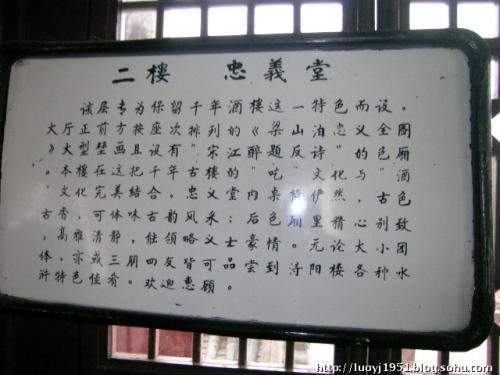 二樓 忠義堂
该层专为保留千年酒楼这一特色而设。
大厅正前方按座次排列的《梁山泊忠义全图
》大型壁画且设有"宋江醉题反诗"的包厢
。本楼在这把千年古楼的"吃"文化与"酒
"文化完美结合。忠义堂内桌椅俨然，古色
古香，可体味古韵风采；后包厢里精心别致
，高雅清静，能领略义士豪情。无论大小团
体、亦或三朋四友皆可品尝到浔阳楼各种水
浒特色佳肴。欢迎惠顾。
http://luoyj1951.blog.sohu.com